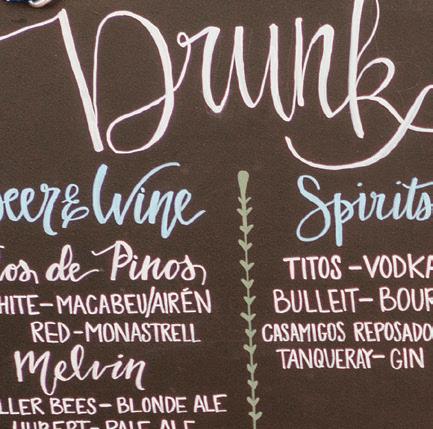 Drunk
eer & Wine
os de Pinos
HITE - MACABEU/AIRÉN
RED - MONASTRELL
Melvin
LLER BEES - BLONDE ALE
HUBERT - PALE ALE
Spirits
TITOS - VODKA
BULLEIT - BOUR
CASAMIGOS REPOSADO
TANQUERAY - GIN